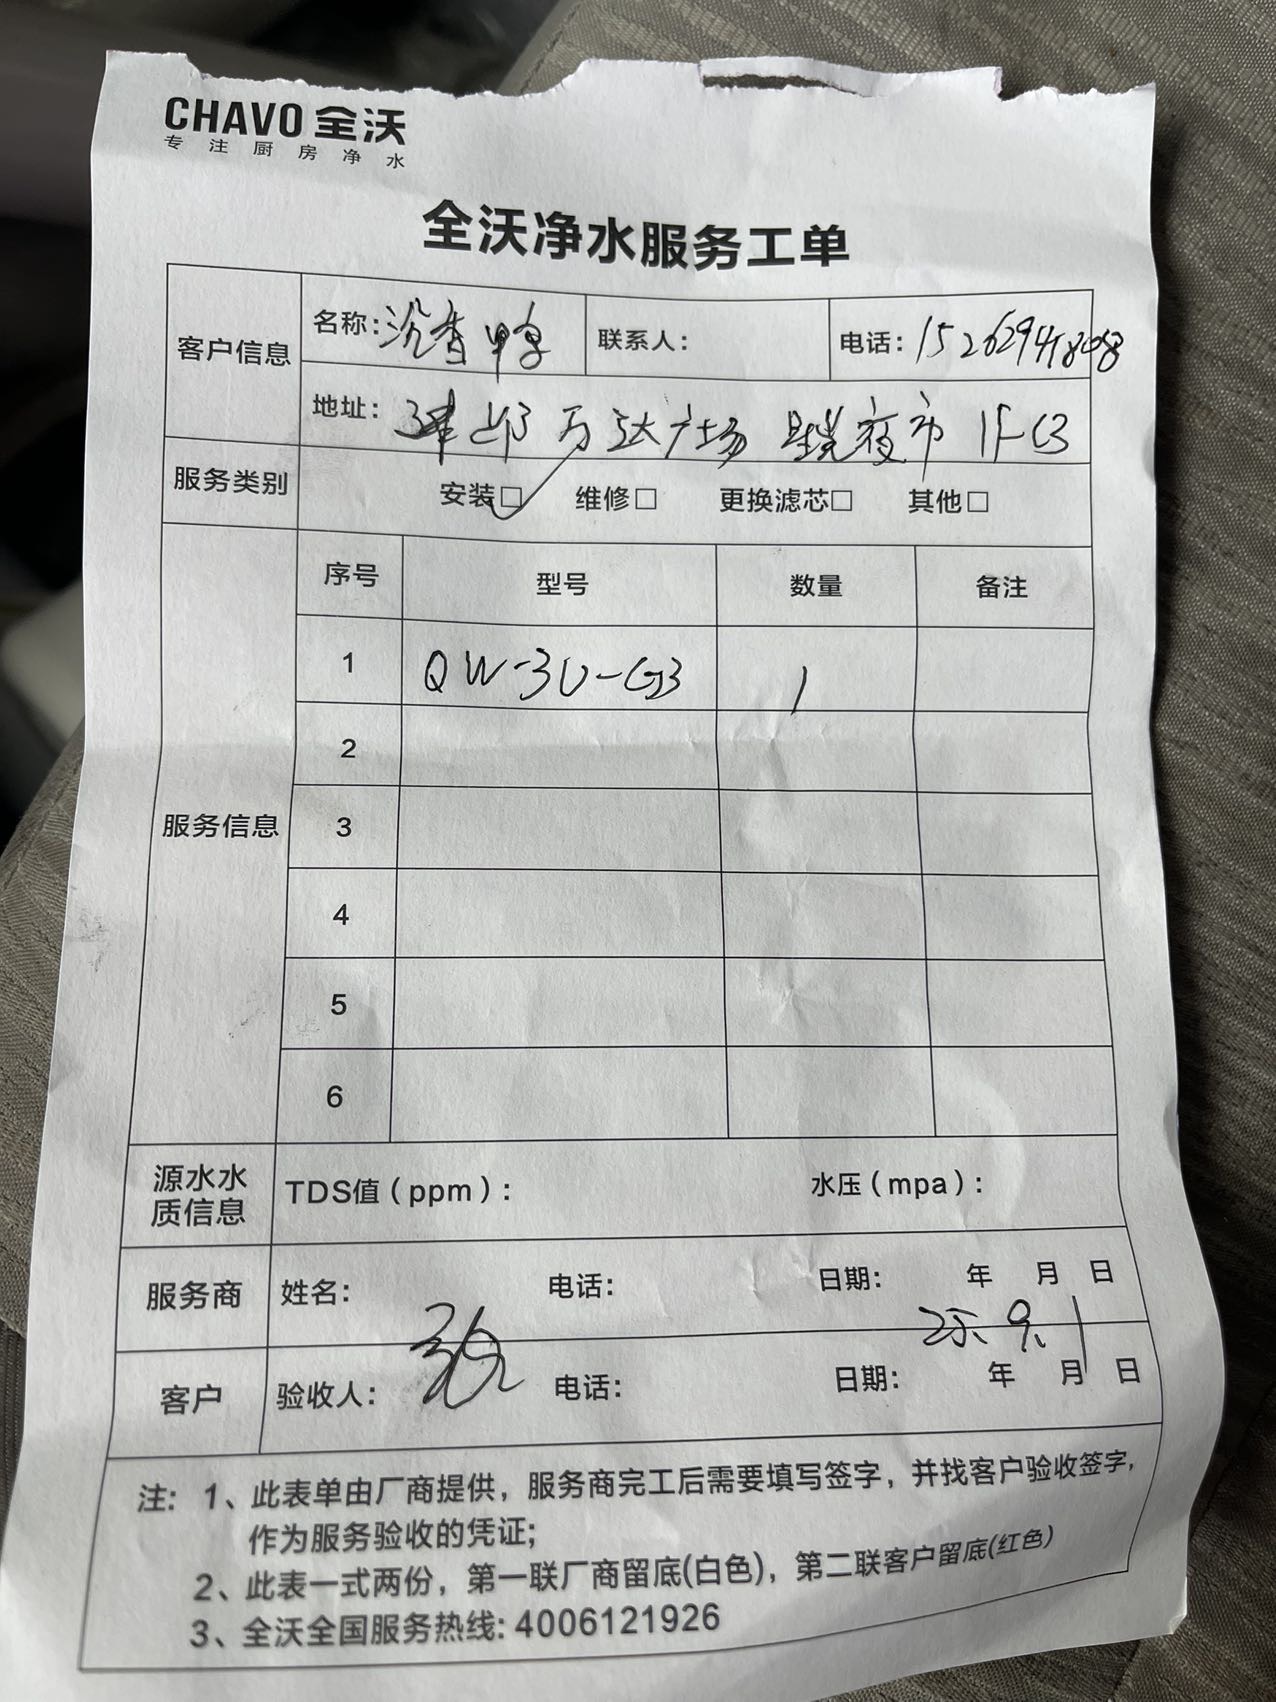 CHAVO 全沃
专注厨房净水
全沃净水服务工单
客户信息
名称: 香鸭 联系人: 电话:
地址: 万达广场 夜市 1F-C3
服务类别 安装☑ 维修□ 更换滤芯□ 其他□
服务信息
序号 型号 数量 备注
1 QW-3U-G3 1
2
3
4
5
6
源水水质信息 TDS值(ppm): 水压(mpa):
服务商 姓名: 电话: 日期: 年 月 日
25.9.1
客户 验收人: 电话: 日期: 年 月 日
注: 1、此表单由厂商提供,服务商完工后需要填写签字,并找客户验收签字,
作为服务验收的凭证;
2、此表一式两份,第一联厂商留底(白色),第二联客户留底(红色)
3、全沃全国服务热线: 4006121926